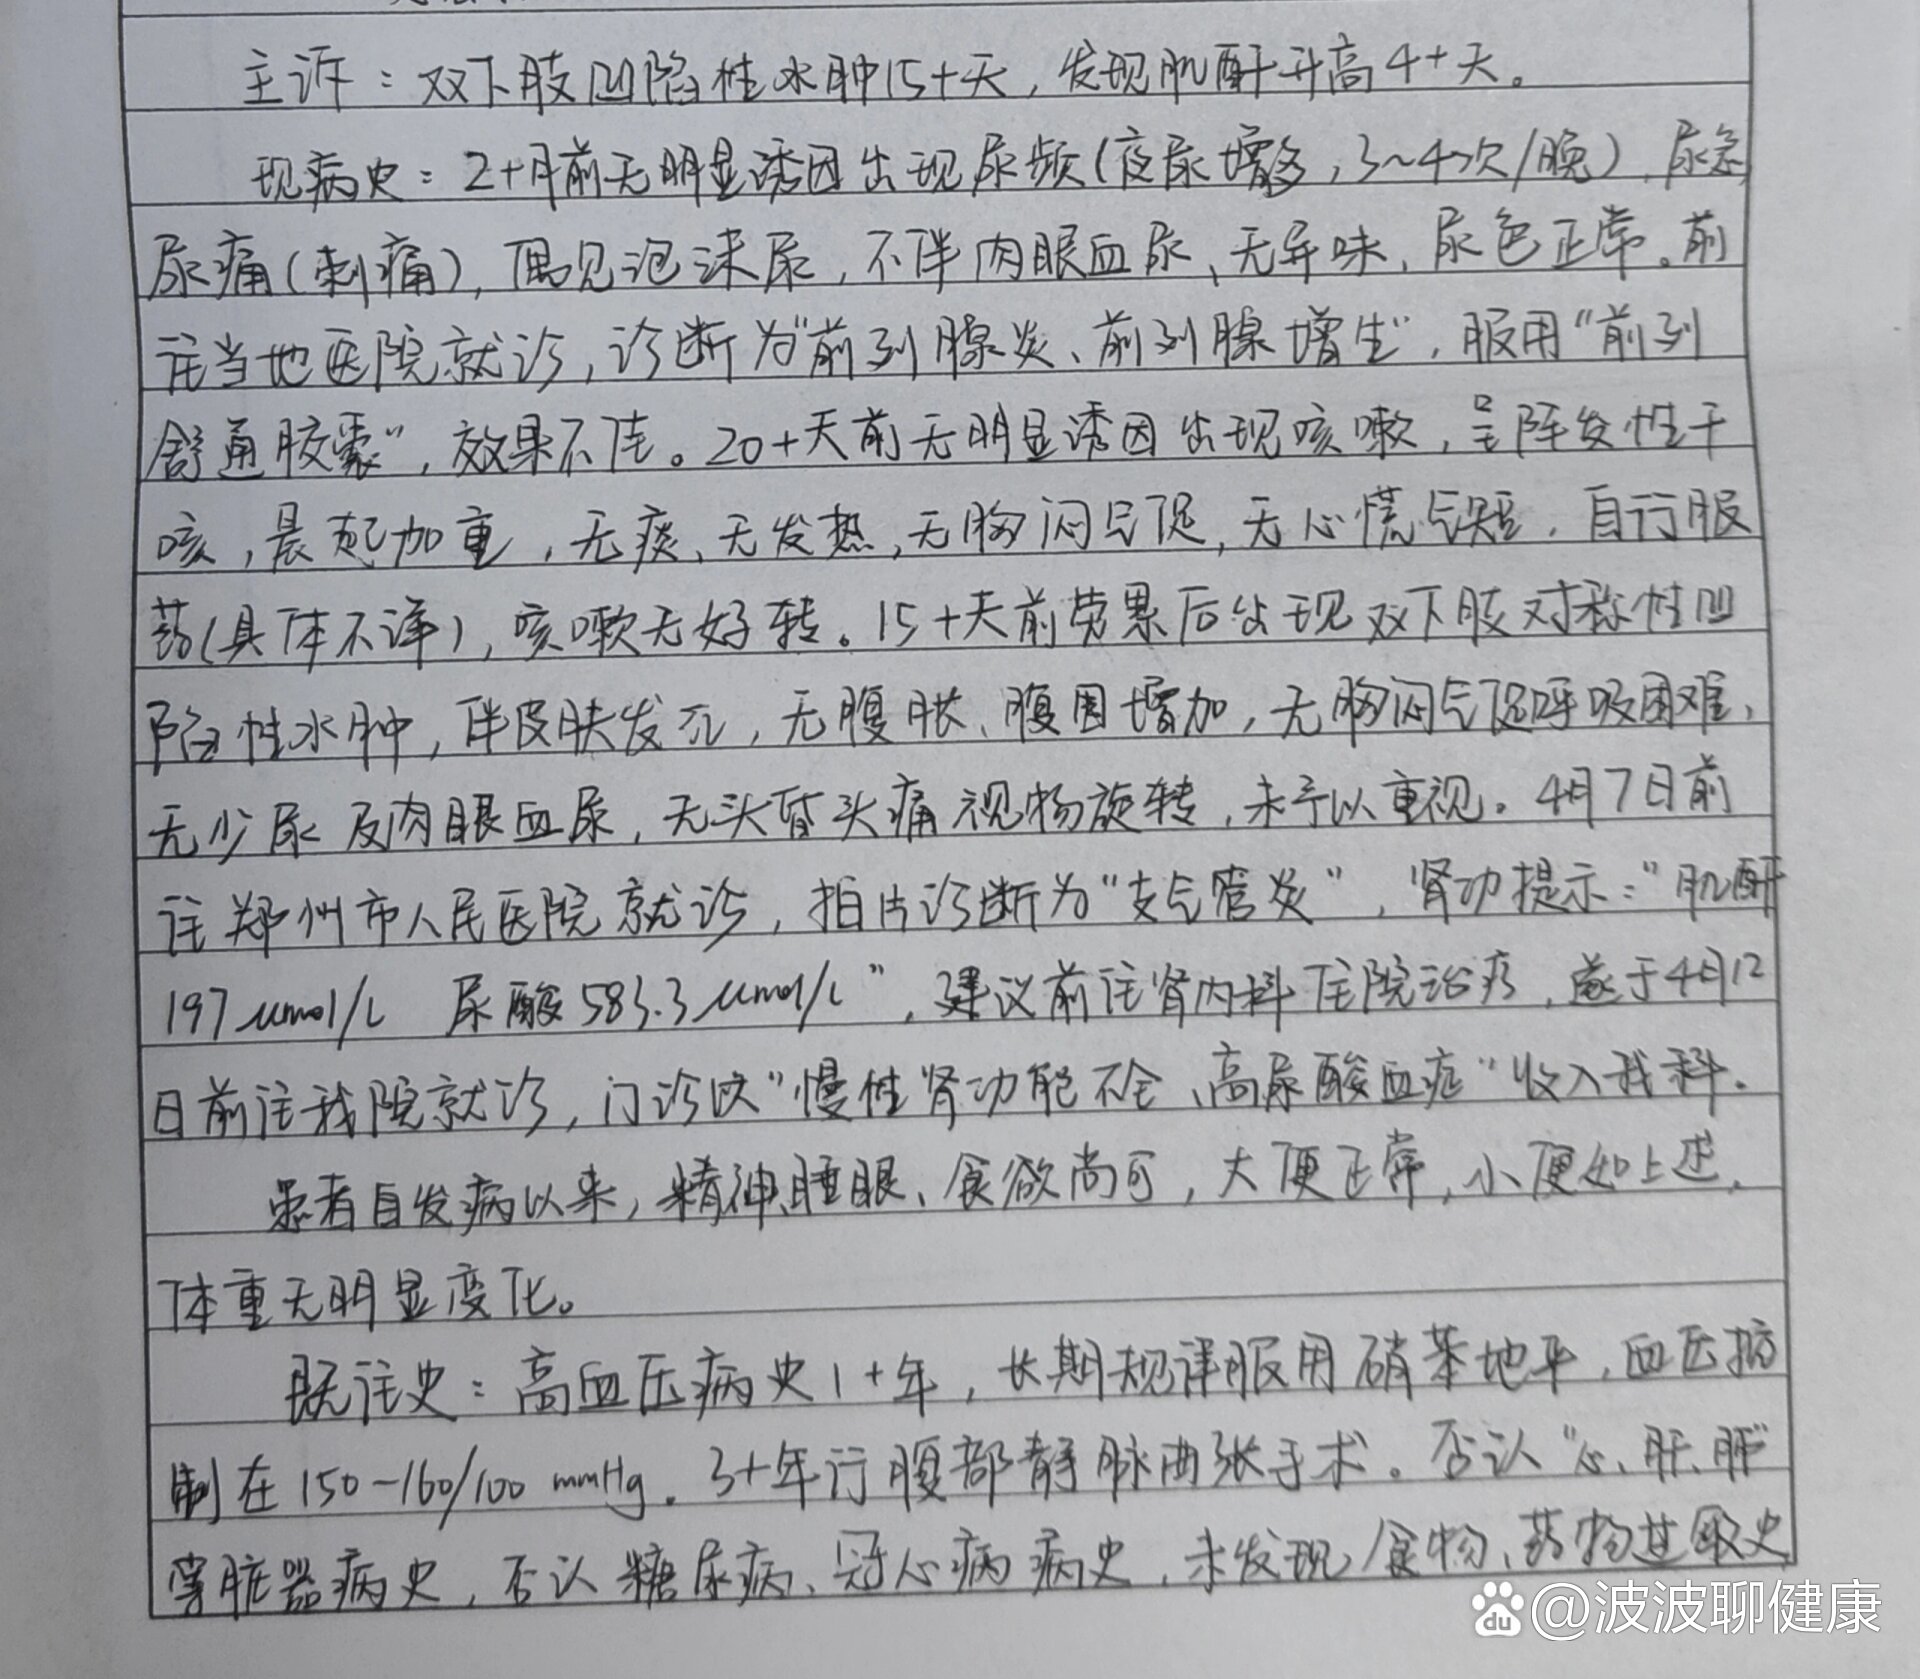 主诉：双下肢凹陷性水肿15+天，发现肌酐升高4+天。
现病史：2+月前无明显诱因出现尿频（夜尿增多，3~4次/晚），尿急，
尿痛（刺痛），偶见泡沫尿，不伴肉眼血尿、无异味，尿色正常。前
往当地医院就诊，诊断为"前列腺炎、前列腺增生"，服用"前列
舒通胶囊"，效果不佳。20+天前无明显诱因出现咳嗽，呈阵发性干
咳，晨起加重，无痰、无发热，无胸闷气促，无心慌气短，自行服
药（具体不详），咳嗽无好转。15+天前劳累后出现双下肢对称性凹
陷性水肿，伴皮肤发亮，无腹胀、腹围增加，无胸闷气促呼吸困难，
无少尿及肉眼血尿，无头昏头痛视物旋转，未予以重视。4月7日前
往郑州市人民医院就诊，拍片诊断为"支气管炎"，肾功提示："肌酐
197μmol/L 尿酸583.3μmol/L"，建议前往肾内科住院治疗，遂于4月12
日前往我院就诊，门诊以"慢性肾功能不全、高尿酸血症"收入我科。
患者自发病以来，精神、睡眠、食欲尚可，大便正常，小便如上述，
体重无明显变化。
既往史：高血压病史1+年，长期规律服用硝苯地平，血压控
制在150-160/100mmHg。3+年行腹部静脉曲张手术。否认"心、肝、肺"
等脏器病史，否认糖尿病、冠心病病史，未发现食物、药物过敏史
@波波聊健康